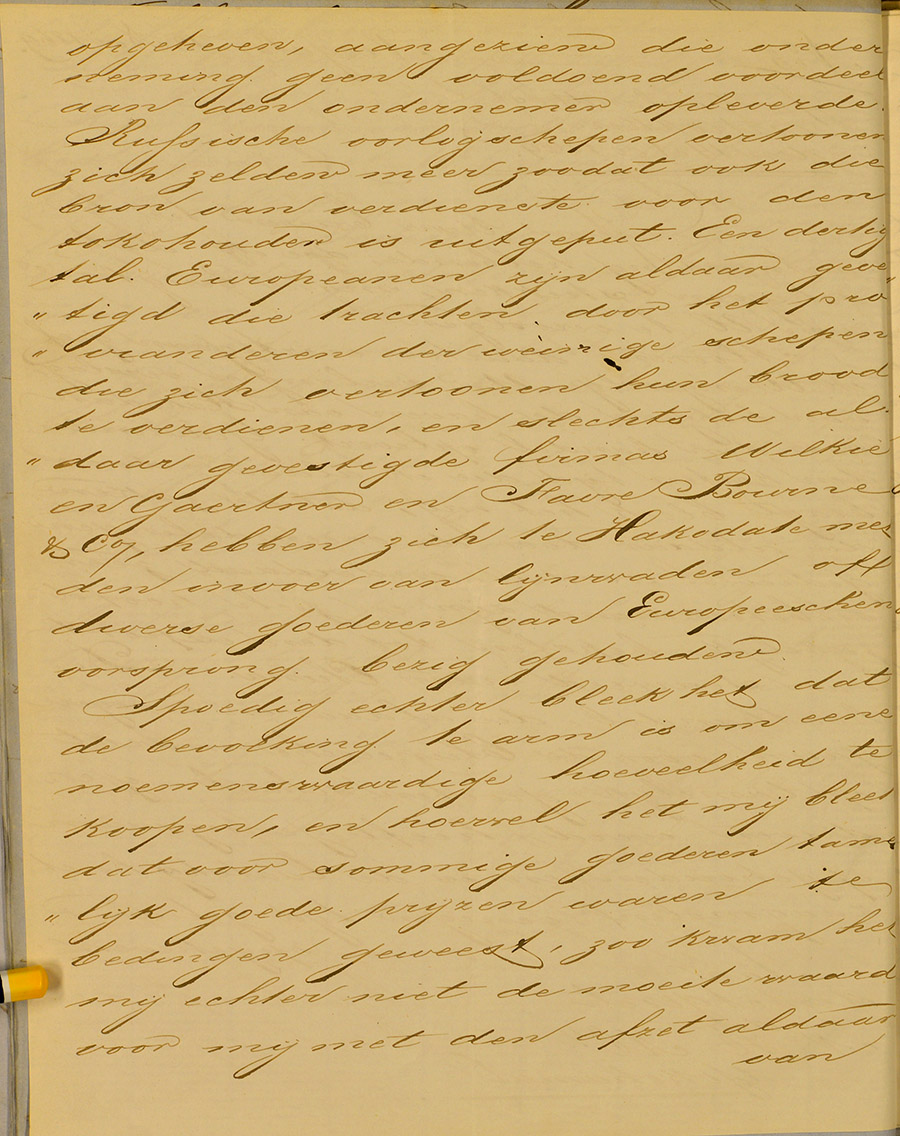 opgeheven, aangezien die onder
neming geen voldoend voordeel
aan den ondernemer opleverde.
Russische oorlogschepen vertoonen
zich zelden meer zoodat ook die
bron van verdienste voor den
tokohouder is uitgeput. Een dertig
tal. Europeanen zijn aldaar geve"
" tigd die trachten door het pro
" vianderen der weinige schepen
die zich vertoonen hun brood
te verdienen, en slechts de al.
" daar gevestigde firmas Wilkie
en Gaertner en Favre Bourne
& Co, hebben zich te Hakodate met
den invoer van lijnwaden off
diverse goederen van Europeeschen
oorsprong. bezig gehouden.
Spoedig echter bleek het dat
de bevolking te arm is om eene
noemenswaardige hoeveelheid te
koopen, en hoewel het mij bleek
dat voor sommige goederen tame
" lijk goede prijzen waren te
bedingen geweest, zoo kwam het
mij echter niet de moeite waard
voor mij met den afzet aldaar
van